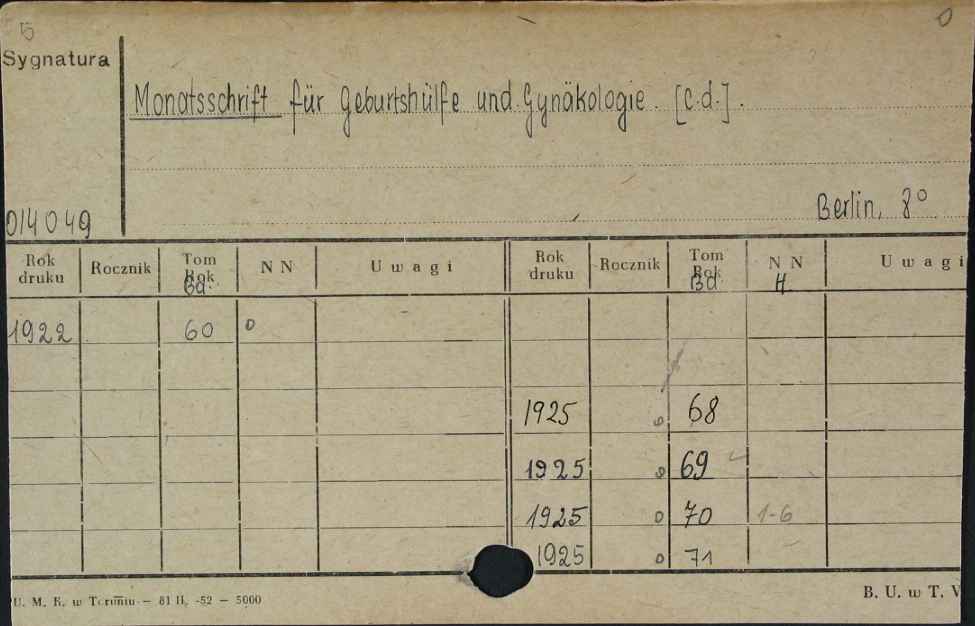 5
0
Sygnatura
Monatsschrift für Geburtshülfe und Gynäkologie. [C.d.].
014049
Berlin, 8°
Rok druku Rocznik Tom Rok NN Uwagi Rok druku Rocznik Tom Rok NN Uwagi
Bd. Bd. H.
1922 60 0
1925 0 68
1925 0 69
1925 0 70 1-6
1925 0 71
U. M. K. w Toruniu — 81 II. -52 — 5000
B. U. w T. V